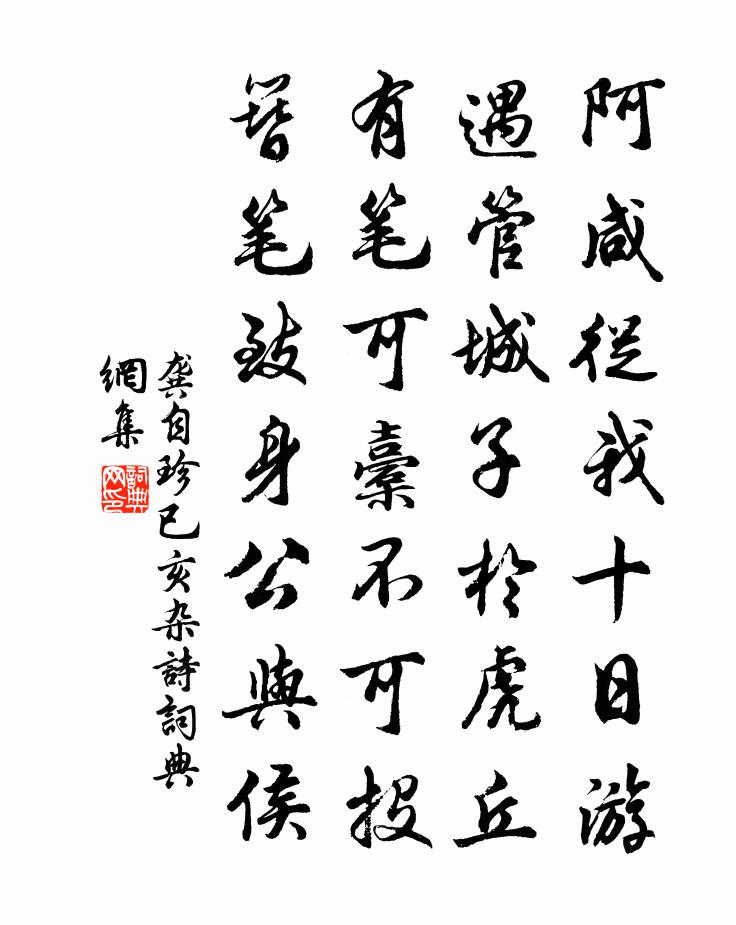 阿咸從我十日游
遇管城子於虎丘
有笔可橐不可投
簪笔致身公與侯
龔自珍己亥杂詩詞典
網集
詞典
网印